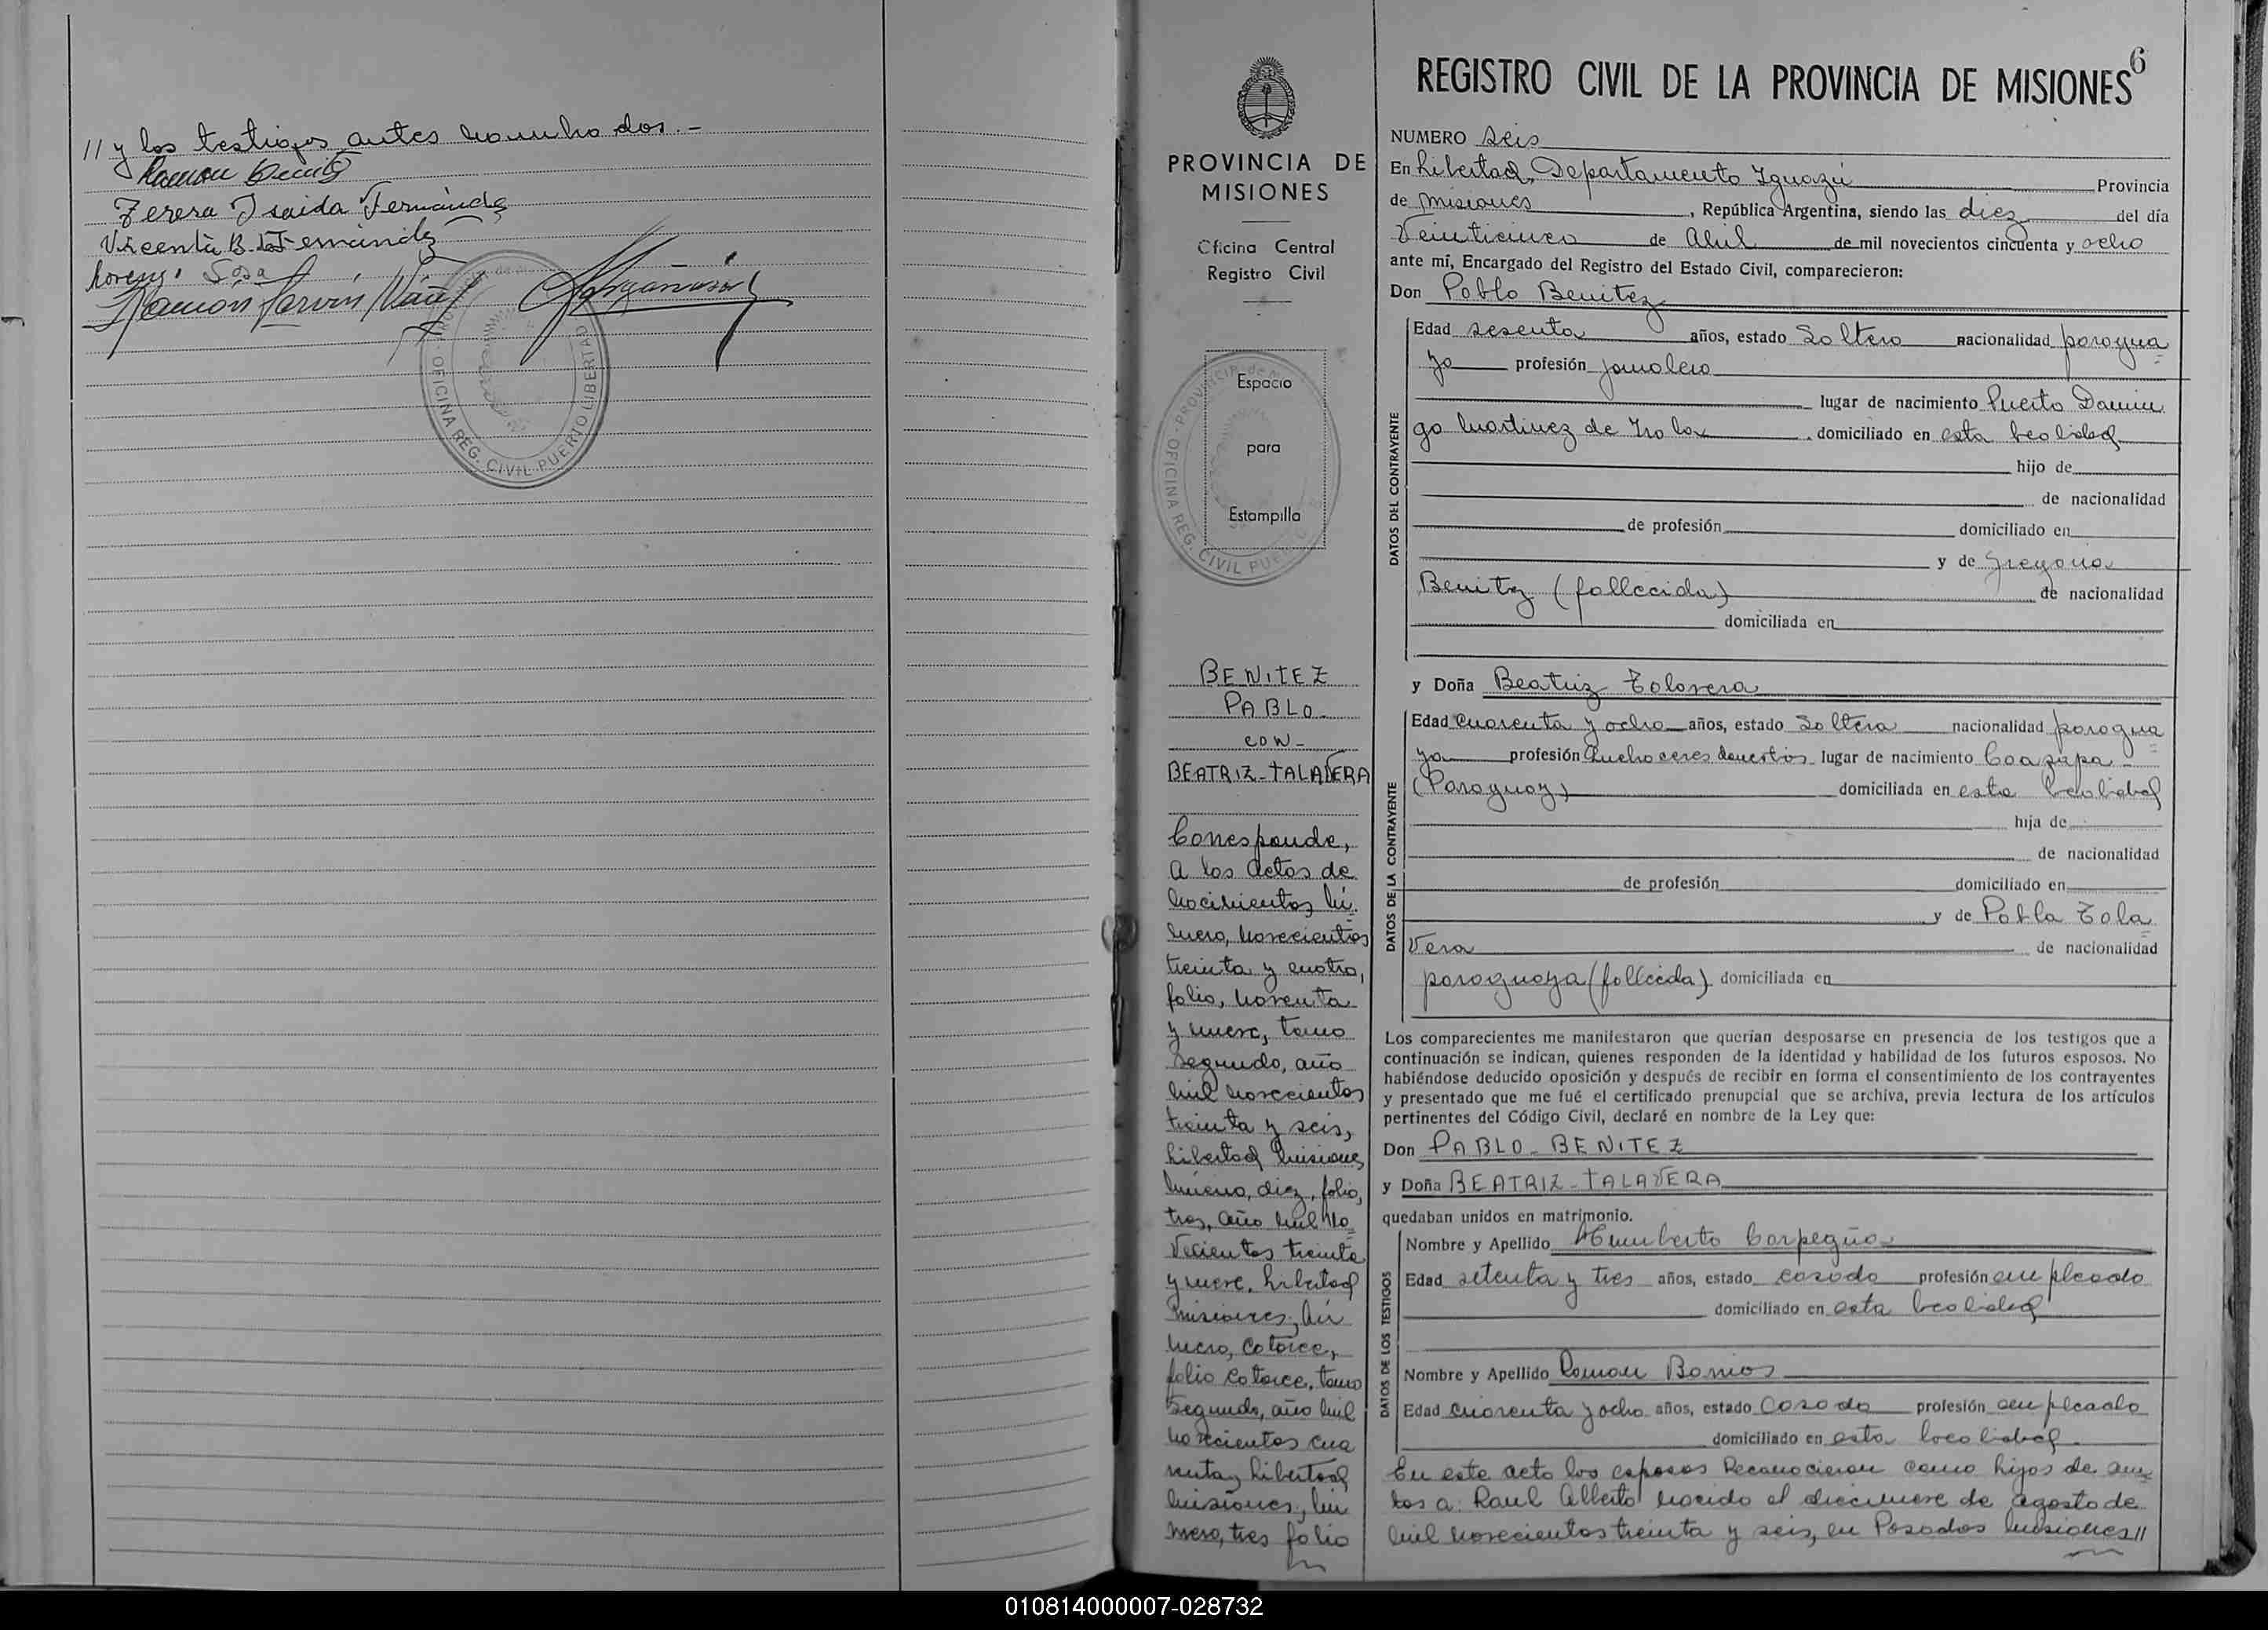 // y los testigos antes nombrados.-
Ramon Benitez
Teresa Isaida Fernández
Vicenta B. de Fernández
Lorenzo Sosa
Ramón
OFICINA REG. CIVIL PUERTO LIBERTAD
PROVINCIA DE
MISIONES
Oficina Central
Registro Civil
Espacio
para
Estampilla
OFICINA REG. CIVIL PUERTO
BENITEZ
PABLO-
CON-
BEATRIZ-TALAVERA
Corresponde,
a los actos de
nacimientos nú=
mero, novecientos
treinta y cuatro,
folio, noventa
y nueve, tomo
segundo, año
mil novecientos
treinta y seis,
Libertad Misiones
número, diez, folio,
tres, año mil no=
vecientos treinta
y nueve, Libertad
Misiones, nú
mero, catorce,
folio catorce, tomo
segundo, año mil
novecientos cua
renta, Libertad
Misiones, nú
mero, tres folio
6
REGISTRO CIVIL DE LA PROVINCIA DE MISIONES
NUMERO seis
En Libertad, Departamento Iguazú Provincia
de Misiones, República Argentina, siendo las diez del día
Veinticinco de Abril de mil novecientos cincuenta y ocho
ante mí, Encargado del Registro del Estado Civil, comparecieron:
Don Pablo Benitez
DATOS DEL CONTRAYENTE
Edad sesenta años, estado Soltero nacionalidad paragua=
yo profesión Jornalero
lugar de nacimiento Puerto Domin
go Martinez de Irala, domiciliado en esta localidad
hijo de
de nacionalidad
de profesión domiciliado en
y de Gregoria
Benitez (fallecida) de nacionalidad
domiciliada en
y Doña Beatriz Talavera
DATOS DE LA CONTRAYENTE
Edad cuarenta y ocho años, estado Soltera nacionalidad paragua=
ya profesión Quehaceres domesticos lugar de nacimiento Caazapa-
(Paraguay) domiciliada en esta localidad
hija de
de nacionalidad
de profesión domiciliado en
y de Pabla Tala=
vera de nacionalidad
paraguaya (fallecida) domiciliada en
Los comparecientes me manifestaron que querían desposarse en presencia de los testigos que a
continuación se indican, quienes responden de la identidad y habilidad de los futuros esposos. No
habiéndose deducido oposición y después de recibir en forma el consentimiento de los contrayentes
y presentado que me fué el certificado prenupcial que se archiva, previa lectura de los artículos
pertinentes del Código Civil, declaré en nombre de la Ley que:
Don PABLO-BENITEZ
y Doña BEATRIZ-TALAVERA
quedaban unidos en matrimonio.
DATOS DE LOS TESTIGOS
Nombre y Apellido Humberto Carpegna
Edad setenta y tres años, estado casado profesión empleado
domiciliado en esta localidad
Nombre y Apellido Ramon Barrios
Edad cuarenta y ocho años, estado Casado profesión empleado
domiciliado en esta localidad.
En este acto los esposos Reconocieron como hijos de am=
bos a: Raul Alberto nacido el diecinueve de agosto de
mil novecientos treinta y seis, en Posadas Misiones//
010814000007-028732